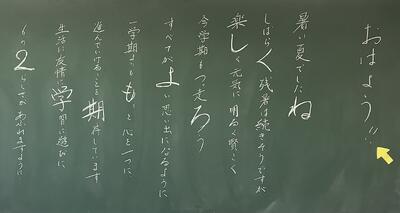 おはよう!!
暑い夏でしたね
しばらく残暑は続きそうですが
楽しく元気に明るく賢こく
今学期も ろう
すべてがよい思い出になるように
一学期よりももっと心を一つに
進んでいけることを期待しています
生活に友情に学習に遊びに
6の2らしさが表れますように